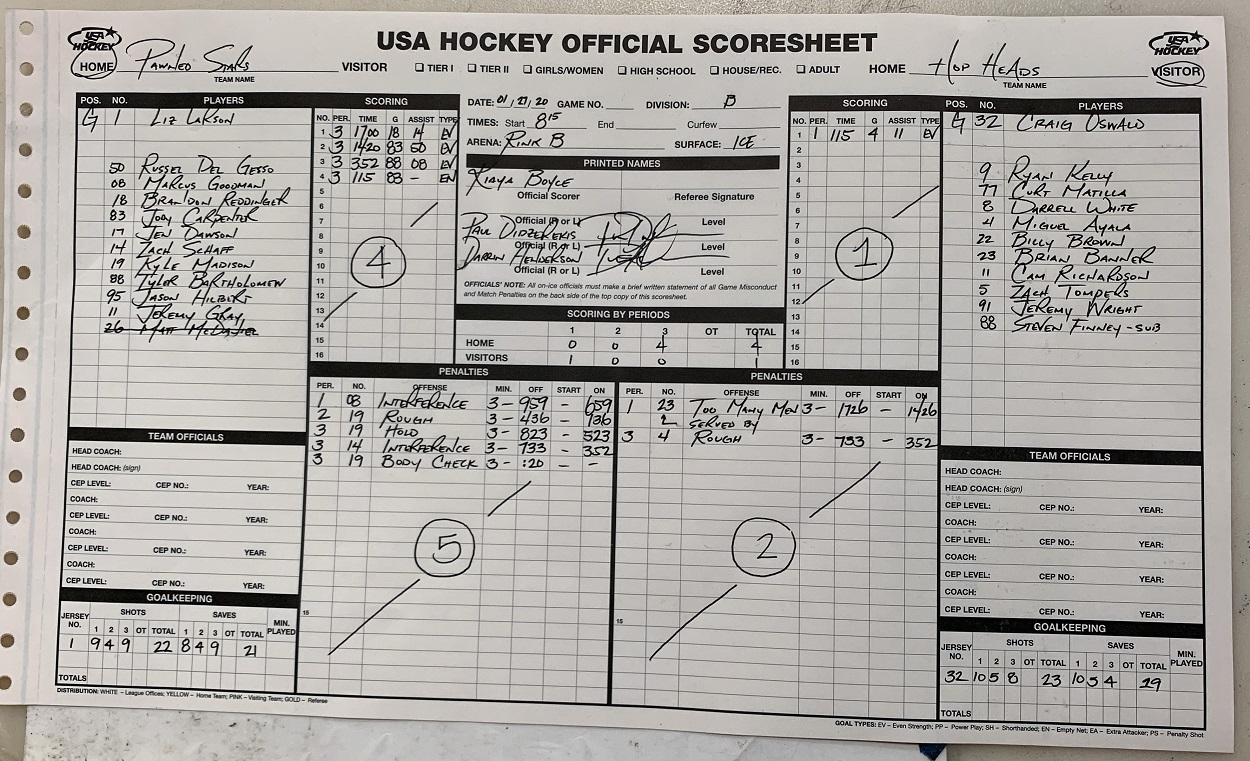 USA HOCKEY OFFICIAL SCORESHEET
USA HOCKEY
HOME Pawned Stars VISITOR
TEAM NAME
☐ TIER I ☐ TIER II ☐ GIRLS/WOMEN ☐ HIGH SCHOOL ☐ HOUSE/REC. ☐ ADULT
HOME Hop Heads VISITOR
TEAM NAME
USA HOCKEY
POS. NO. PLAYERS
G 1 Liz Larson
50 Russel Del Gesso
08 Marcus Goodman
18 Brandon Reddinger
83 Joey Carpenter
17 Jen Dawson
14 Zach Schaff
19 Kyle Madison
88 Tyler Bartholomew
95 Jason Hilbert
11 Jeremy Gray
26 Matt McDaniel
SCORING
NO. PER. TIME G ASSIST TYPE
1 3 1700 18 14 EV
2 3 1420 83 50 EV
3 3 352 88 08 EV
4 3 115 83 - EN
5
6
7
8
9
10
11
12
13
14
15
16
4
DATE: 01/27/20 GAME NO. DIVISION: B
TIMES: Start 8:15 End Curfew
ARENA: Rink B SURFACE: ICE
PRINTED NAMES
Kiaya Boyce
Official Scorer Referee Signature
Official (R or L) Level
Paul Didzerekis
Official (R or L) Level
Darrin Henderson
Official (R or L) Level
OFFICIALS' NOTE: All on-ice officials must make a brief written statement of all Game Misconduct
and Match Penalties on the back side of the top copy of this scoresheet.
SCORING BY PERIODS
1 2 3 OT TOTAL
HOME 0 0 4 4
VISITORS 1 0 0 1
SCORING
NO. PER. TIME G ASSIST TYPE
1 1 115 4 11 EV
2
3
4
5
6
7
8
9
10
11
12
13
14
15
16
1
POS. NO. PLAYERS
G 32 Craig Oswald
9 Ryan Kelly
77 Curt Matilla
8 Darrell White
4 Miguel Ayala
22 Billy Brown
23 Brian Banner
11 Cam Richardson
5 Zach Tompers
91 Jeremy Wright
88 Steven Finney - sub
PENALTIES
PER. NO. OFFENSE MIN. OFF START ON
1 08 Interference 3- 959 - 659
2 19 Rough 3- 436 - 136
3 19 Hold 3- 823 - 523
3 14 Interference 3- 733 - 352
3 19 Body Check 3- :20 - -
15
5
PENALTIES
PER. NO. OFFENSE MIN. OFF START ON
1 23 Too Many Men 3- 1726 - 1426
Served by
3 4 Rough 3- 733 - 352
15
2
TEAM OFFICIALS
HEAD COACH:
HEAD COACH: (sign)
CEP LEVEL: CEP NO.: YEAR:
COACH:
CEP LEVEL: CEP NO.: YEAR:
COACH:
CEP LEVEL: CEP NO.: YEAR:
COACH:
CEP LEVEL: CEP NO.: YEAR:
GOALKEEPING
JERSEY NO. SHOTS SAVES MIN. PLAYED
1 2 3 OT TOTAL 1 2 3 OT TOTAL
1 9 4 9 22 8 4 9 21
TOTALS
TEAM OFFICIALS
HEAD COACH:
HEAD COACH: (sign)
CEP LEVEL: CEP NO.: YEAR:
COACH:
CEP LEVEL: CEP NO.: YEAR:
COACH:
CEP LEVEL: CEP NO.: YEAR:
COACH:
CEP LEVEL: CEP NO.: YEAR:
GOALKEEPING
JERSEY NO. SHOTS SAVES MIN. PLAYED
1 2 3 OT TOTAL 1 2 3 OT TOTAL
32 10 5 8 23 10 5 4 19
TOTALS
DISTRIBUTION: WHITE – League Offices; YELLOW – Home Team; PINK – Visiting Team; GOLD – Referee
GOAL TYPES: EV – Even Strength; PP – Power Play; SH – Shorthanded; EN – Empty Net; EA – Extra Attacker; PS – Penalty Shot